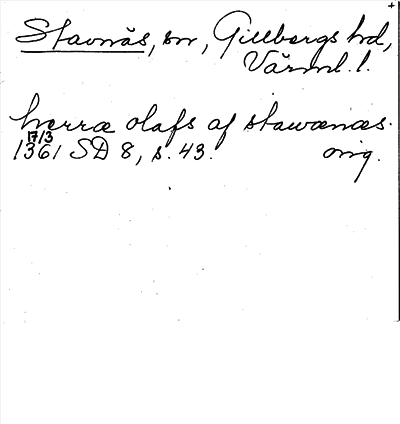 Stavnäs, sn, Gillbergs hd,
Värml. l.
herræ olafs af stawænæs.
17/3
1361 SD 8, s. 43. orig.